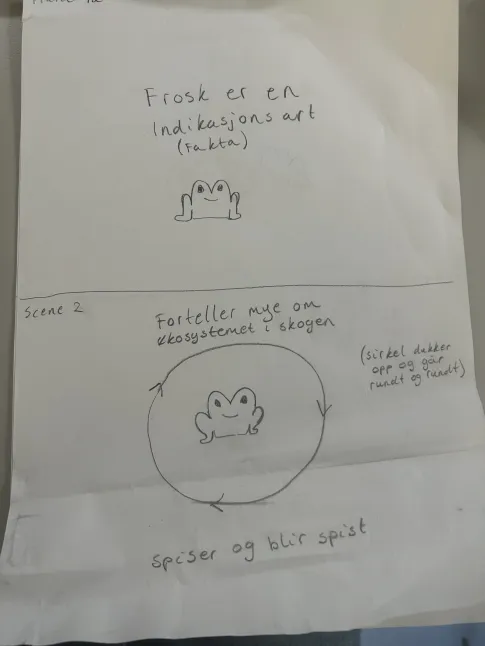 Frosk er en
Indikasjons art
(Fakta)
Scene 2
Forteller mye om
økosystemet i skogen
(sirkel dukker
opp og går
rundt og rundt)
Spiser og blir spist